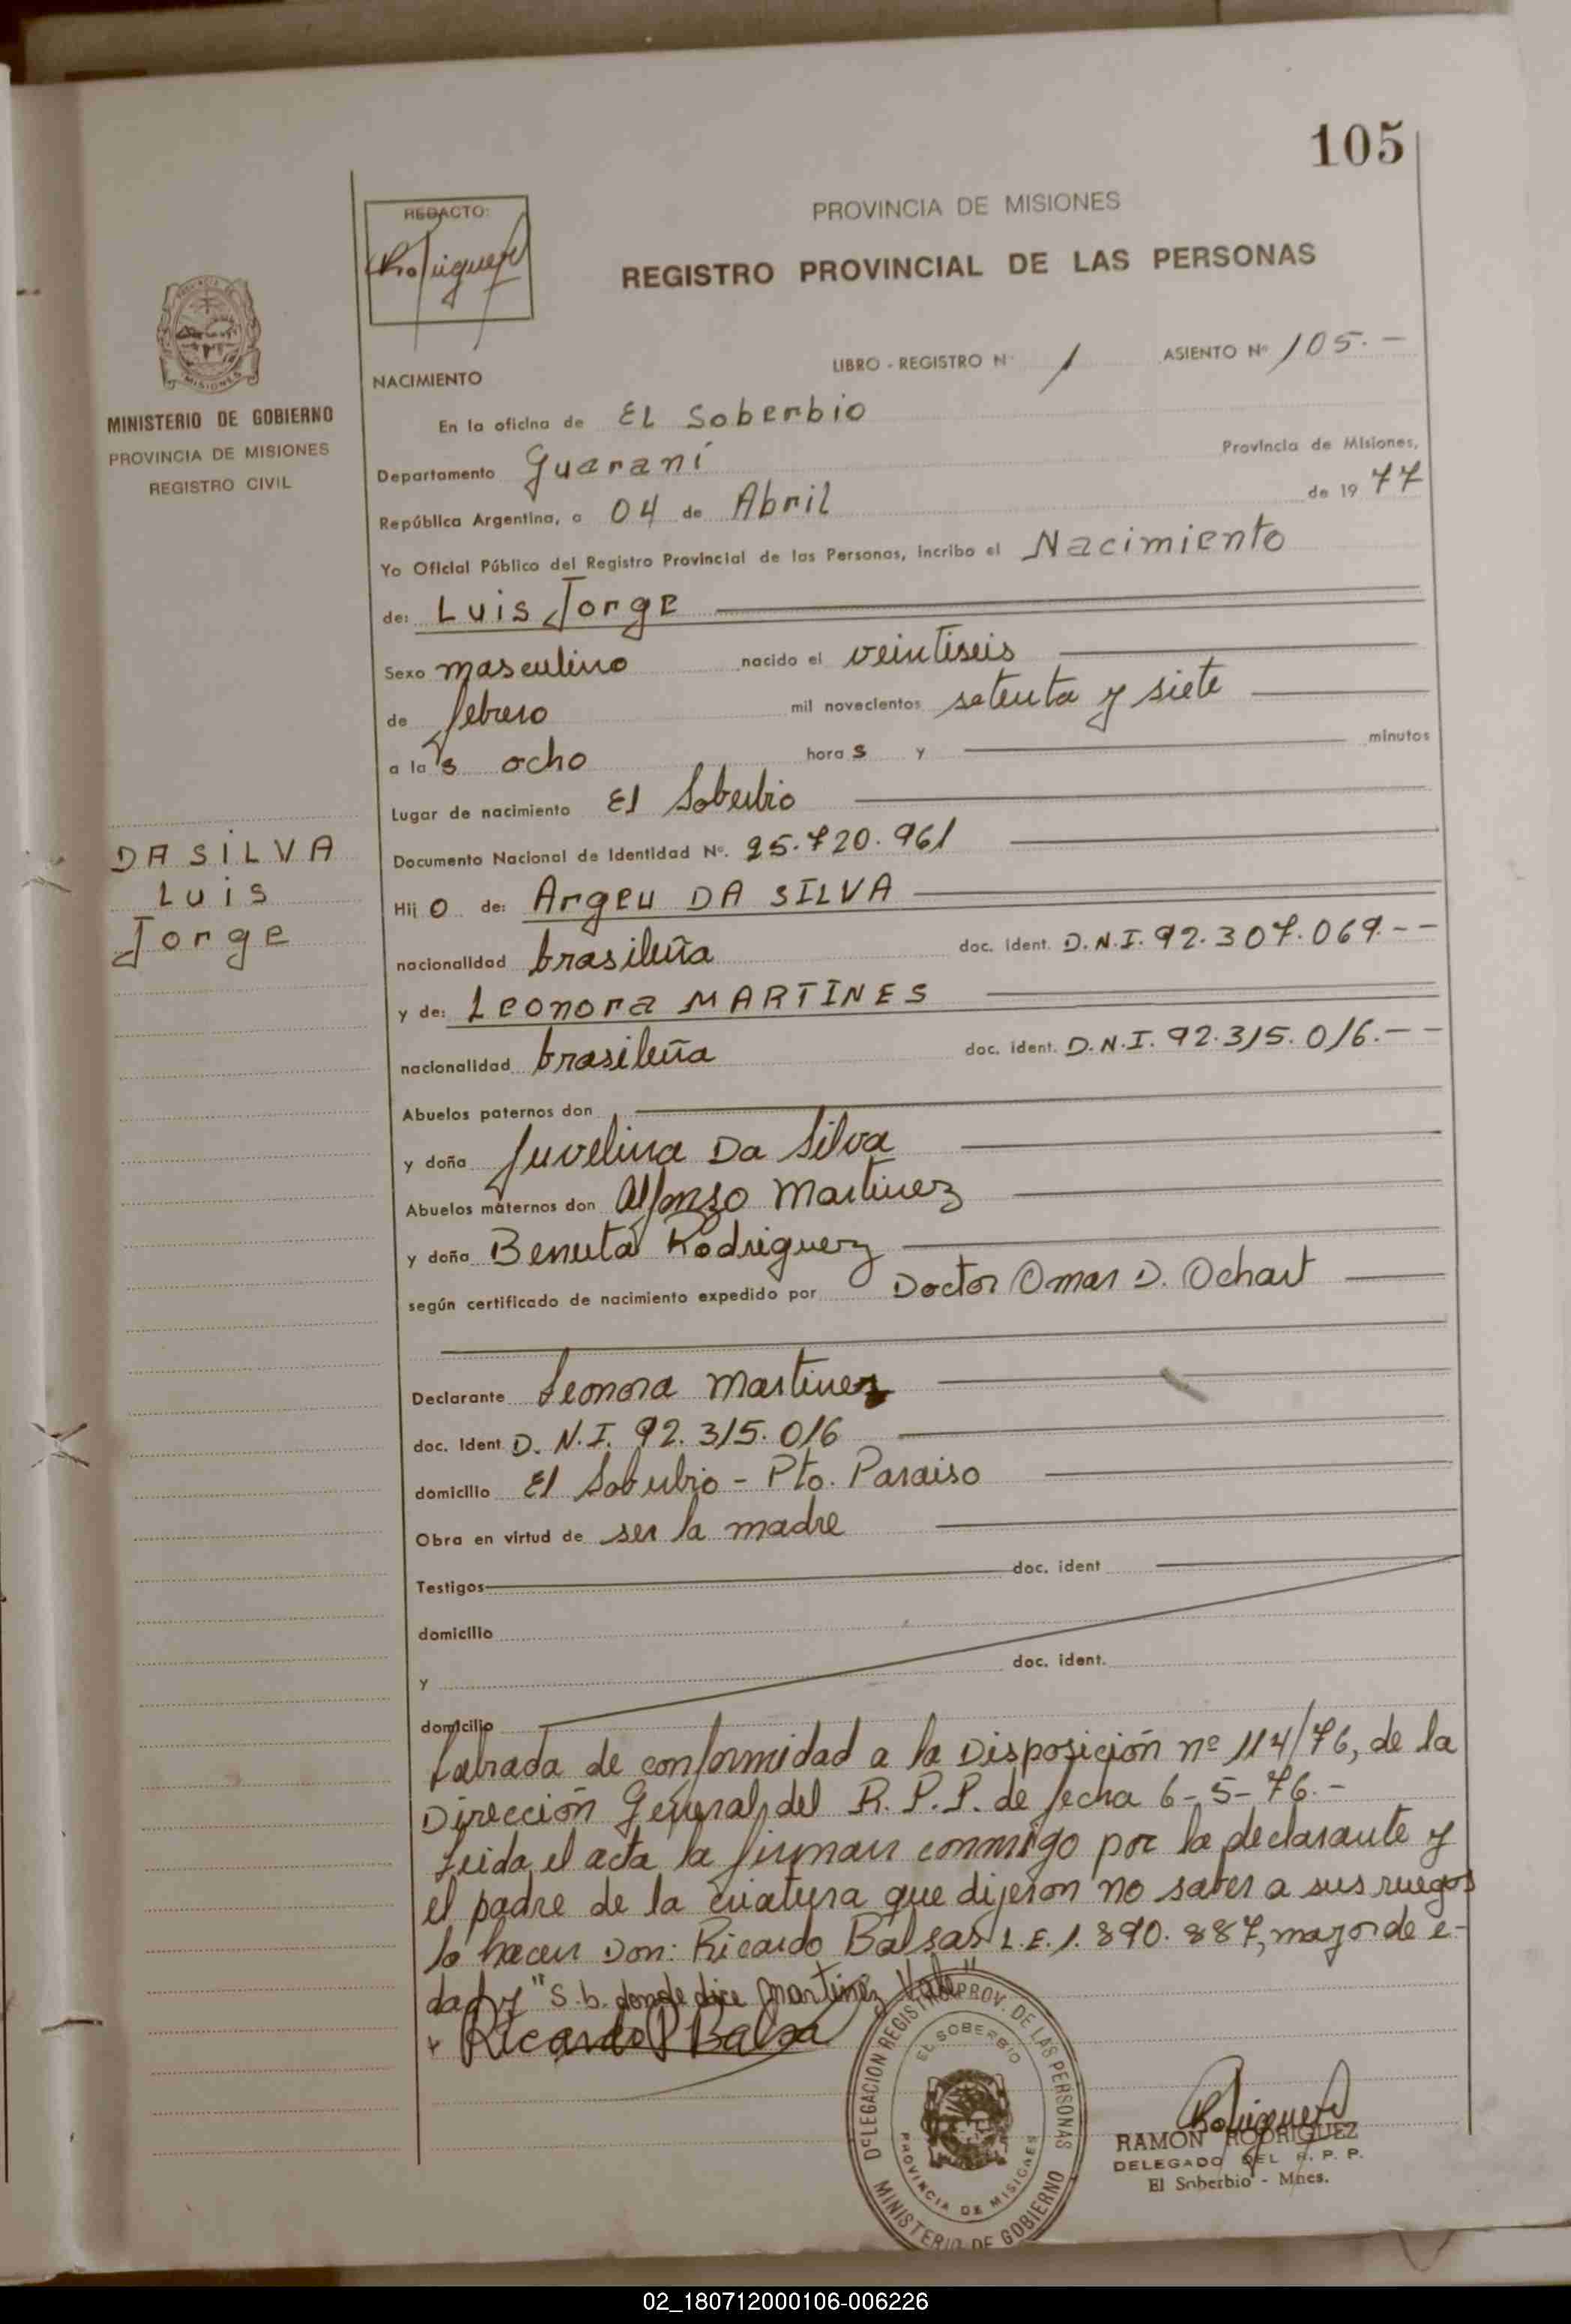 105
REDACTO:
Rodriguez
PROVINCIA DE MISIONES
REGISTRO PROVINCIAL DE LAS PERSONAS
MISIONES
MINISTERIO DE GOBIERNO
PROVINCIA DE MISIONES
REGISTRO CIVIL
LIBRO - REGISTRO Nº 1 ASIENTO Nº 105.-
NACIMIENTO
En la oficina de EL Soberbio
Departamento Guaraní Provincia de Misiones,
República Argentina, a 04 de Abril de 1977
Yo Oficial Público del Registro Provincial de las Personas, incribo el Nacimiento
de: Luis Jorge
Sexo masculino nacido el veintiseis
de febrero mil novecientos setenta y siete
a las ocho horas y minutos
Lugar de nacimiento El Soberbio
DA SILVA
Luis
Jorge
Documento Nacional de Identidad Nº. 25.720.961
Hijo de: Argeu DA SILVA
nacionalidad brasileña doc. ident. D.N.I. 92.307.069.--
y de: Leonora MARTINES
nacionalidad brasileña doc. ident. D.N.I. 92.315.016.--
Abuelos paternos don
y doña Juvelina Da Silva
Abuelos maternos don Alfonzo Martinez
y doña Benuta Rodriguez
según certificado de nacimiento expedido por Doctor Omar D. Ochart
Declarante Leonora Martines
doc. Ident D.N.I. 92.315.016
domicilio El Soberbio - Pto. Paraiso
Obra en virtud de ser la madre
Testigos doc. ident
domicilio
y doc. ident.
domicilio
Labrada de conformidad a la Disposición nº 114/76, de la
Dirección General del R.P.P. de fecha 6-5-76.-
Leida el acta la firman conmigo por la declarante y
el padre de la criatura que dijeron no saber a sus ruegos
lo hacen Don: Ricardo Balsas L.E. 1.890.887, mayor de e-
dad y "S.b. donde dice Martinez Vale"
Ricardo Balsa
DELEGACION REGISTRO PROV. DE LAS PERSONAS
EL SOBERBIO
PROVINCIA DE MISIONES
MINISTERIO DE GOBIERNO
Rodriguez
RAMON RODRIGUEZ
DELEGADO DEL R. P. P.
El Soberbio - Mnes.
02_180712000106-006226